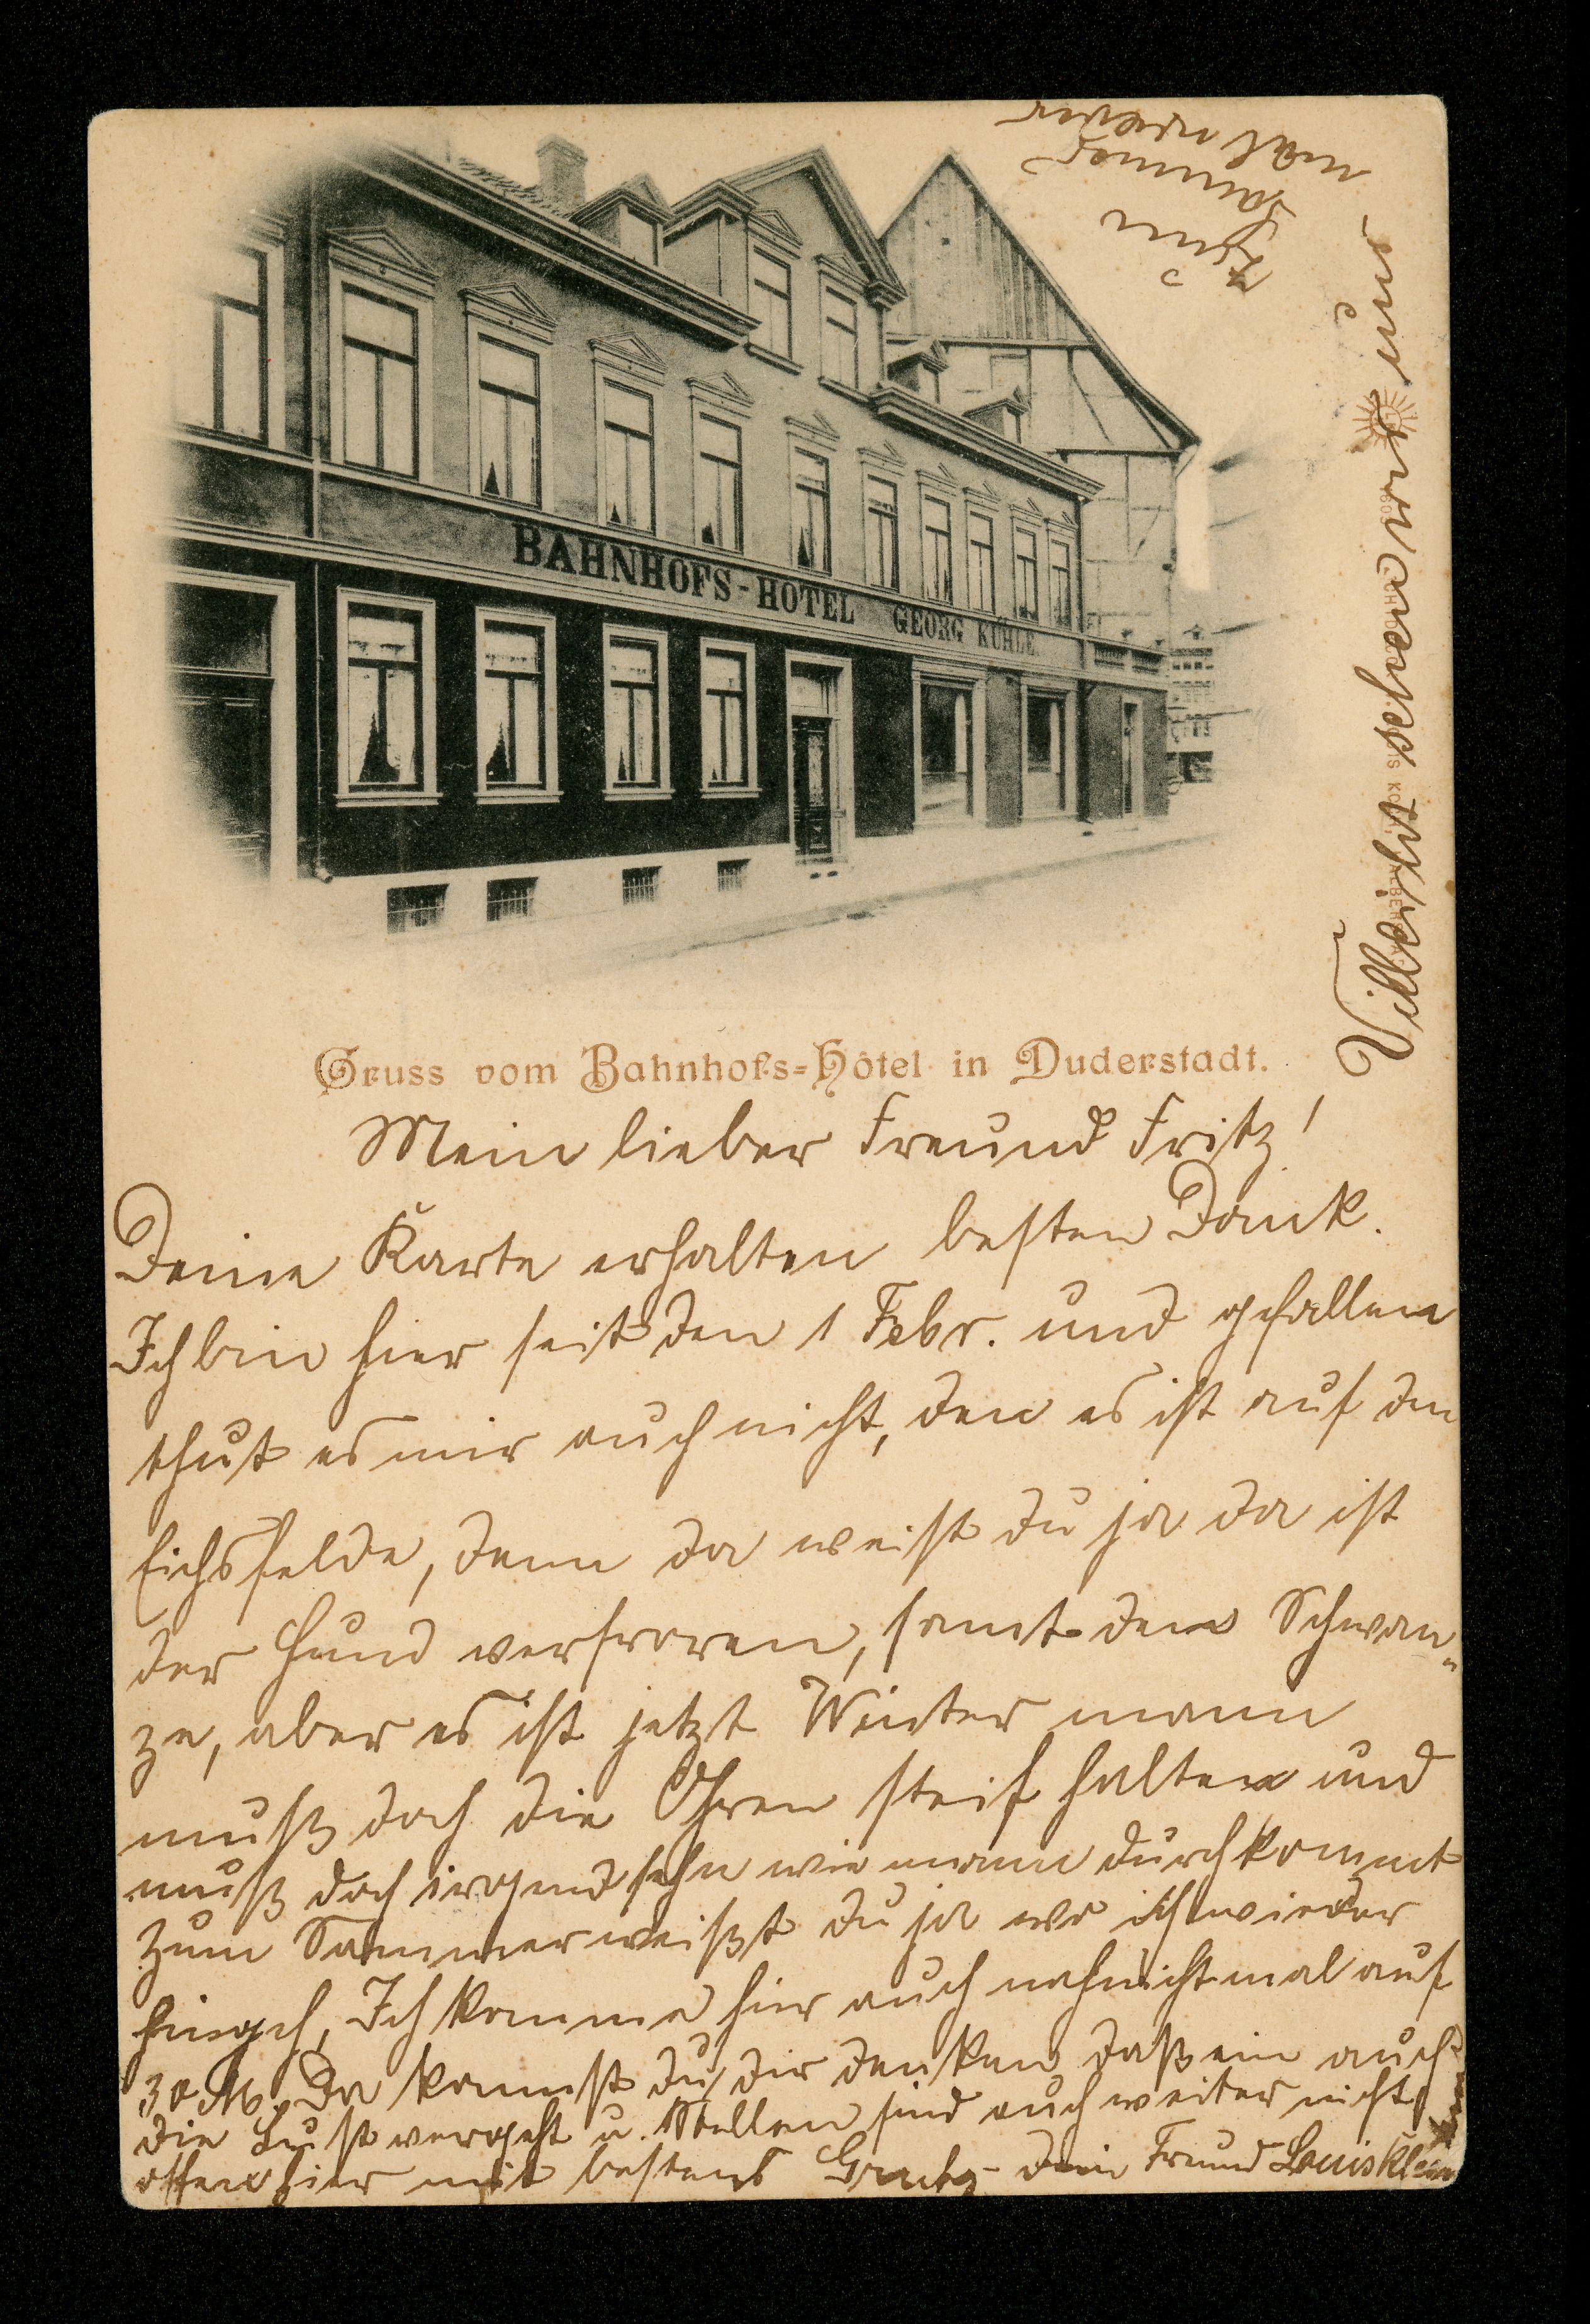 BAHNHOFS-HOTEL GEORG KÜHLE
Gruss vom Bahnhofs=Hôtel in Duderstadt.
Mein lieber Freund Fritz!
Deine Karte erhalten besten Dank.
Ich bin hier seit den 1 Febr. und gefallen
thut es mir auch nicht, den es ist auf den
Eichsfelde, denn da weist du ja da ist
der Hund verfroren, samt den Schwan„
ze, aber es ist jetzt Winter mann
muß doch die Ohren steif halten und
muß doch irgend sehn wie mann durchkommt
zum Sommer weißt du ja wo ich wieder
hingeh, Ich komme hier auch noch nicht mal auf
30 M. Da kannst du dir denken daß ein auch
die Lust vergeht u. Stellen sind auch weiter nicht
offen hier mit bestens Gruß dein Freund Louis Klein
Villeicht schaun wir uns
mal wieder